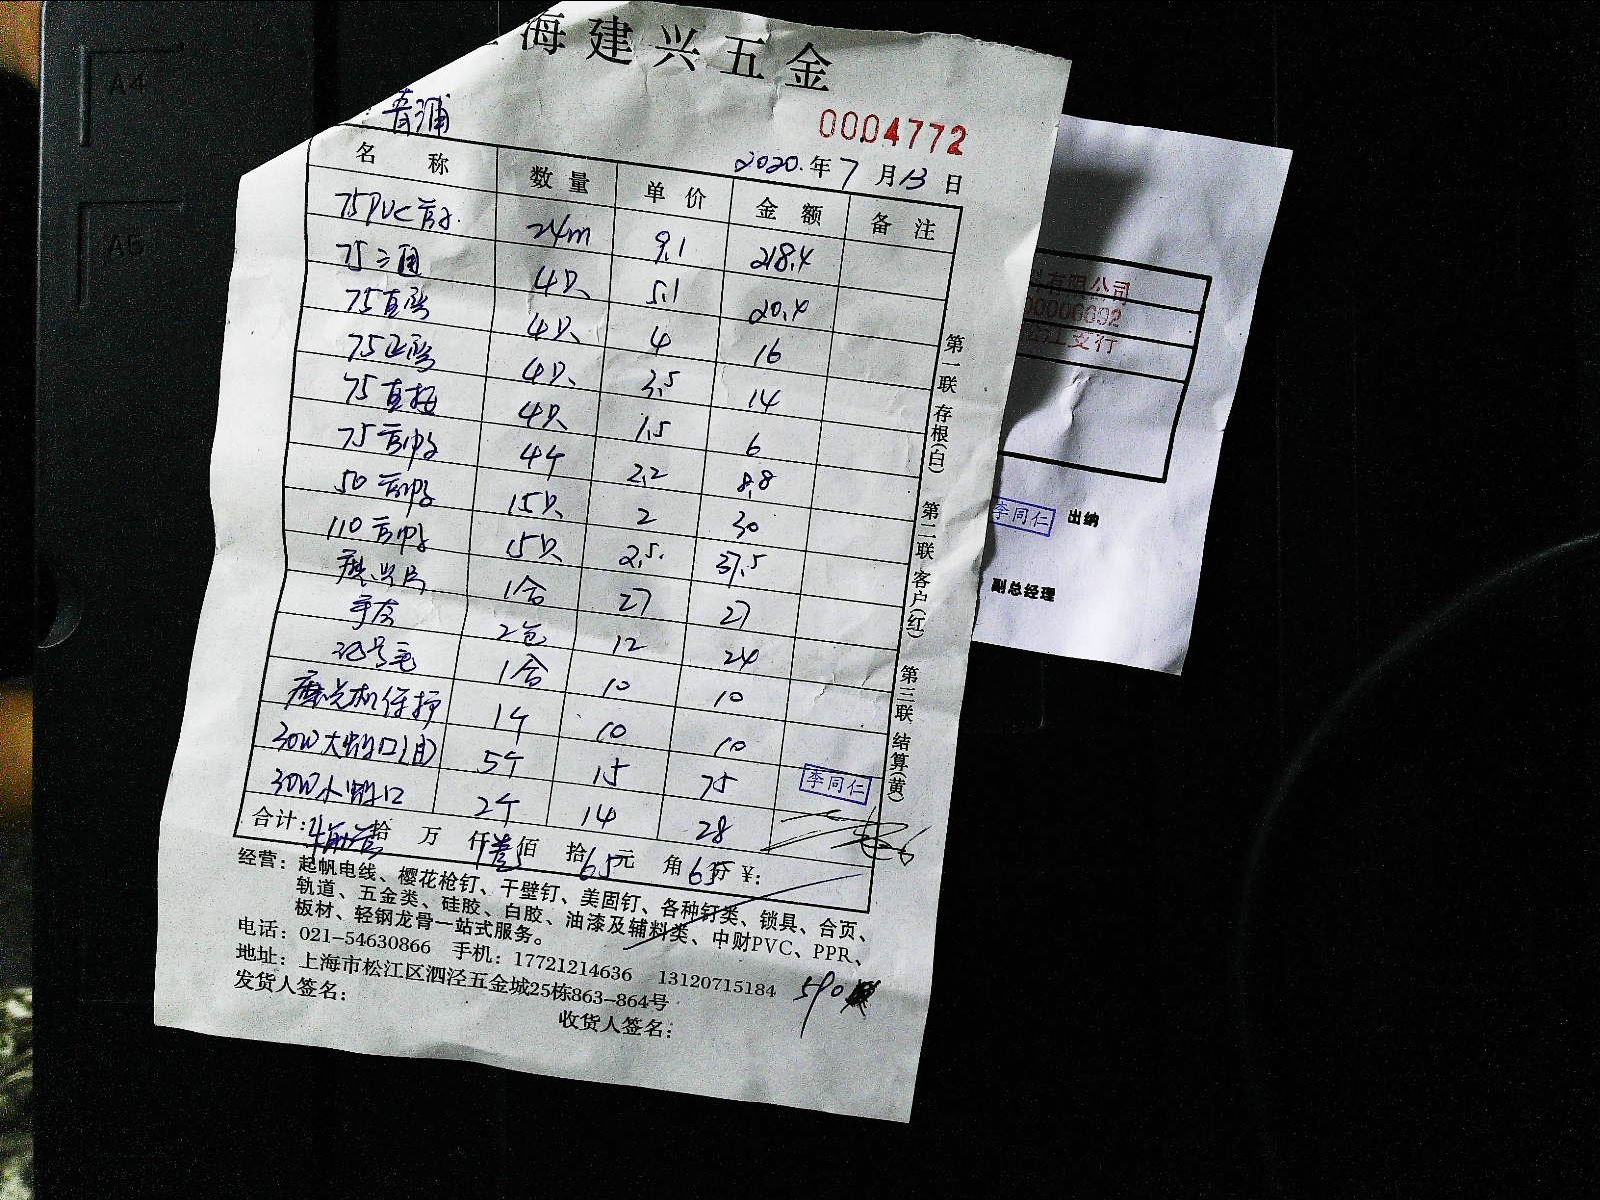 海建兴五金
青浦
0004772
2020.年7月13日
名称 数量 单价 金额 备注
75PVC管子. 24m 9.1 218.4
75三通 4只 5.1 20.4
75直弯 4只 4 16
75正弯 4只 3.5 14
75直接 4只 1.5 6
75管卡子 4个 2.2 8.8
50管卡子 15只 2 30
110管卡子 15只 2.5. 37.5
1合 27 27
2包 12 24
1合 10 10
机保护 1个 10 10
30W大 口(自) 5个 15 75
30W小 口 2个 14 28
李同仁
合计: 拾 万 仟 佰 拾 元 角 分 ¥:
经营: 起帆电线、樱花枪钉、干壁钉、美固钉、各种钉类、锁具、合页、
轨道、五金类、硅胶、白胶、油漆及辅料类、中财PVC、PPR、
板材、轻钢龙骨一站式服务。
电话: 021-54630866 手机: 17721214636 13120715184
590
地址: 上海市松江区泗泾五金城25栋863-864号
发货人签名:
收货人签名:
第一联 存根(白) 第二联 客户(红) 第三联 结算(黄)
有限公司
支行
李同仁 出纳
副总经理